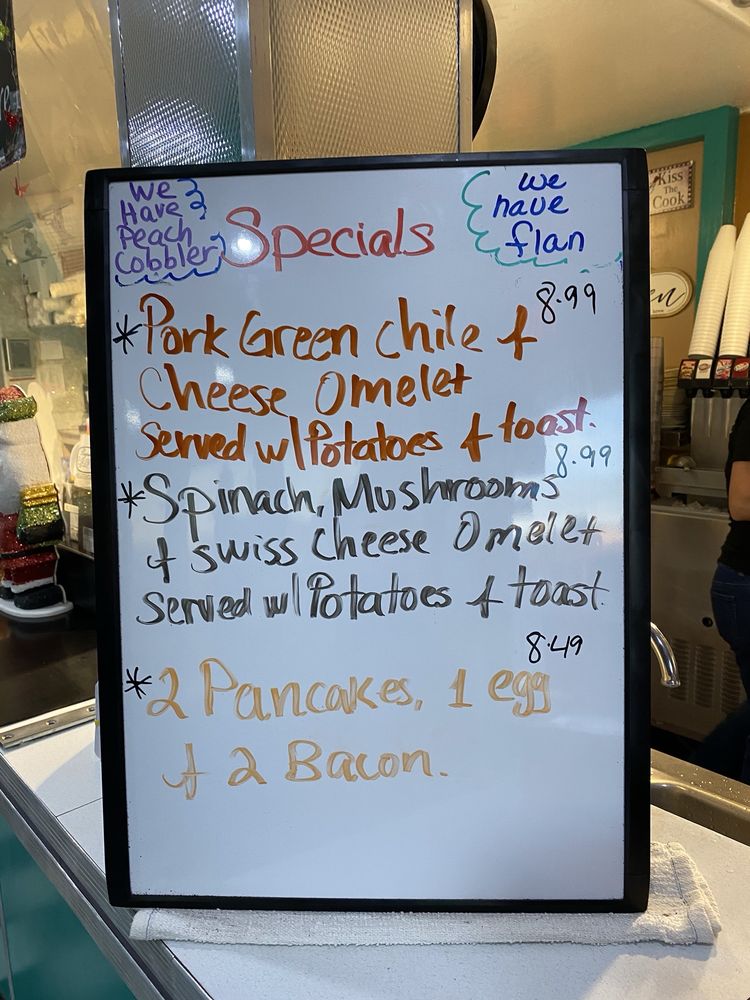 We
Have
Peach
Cobbler
Specials
we
have
flan
8.99
*Pork Green chile &
Cheese Omelet
Served w/Potatoes & toast.
8.99
*Spinach, Mushrooms
& swiss Cheese Omelet
Served w/Potatoes & toast.
8.49
*2 Pancakes, 1 egg
& 2 Bacon.
Kiss
The
Cook